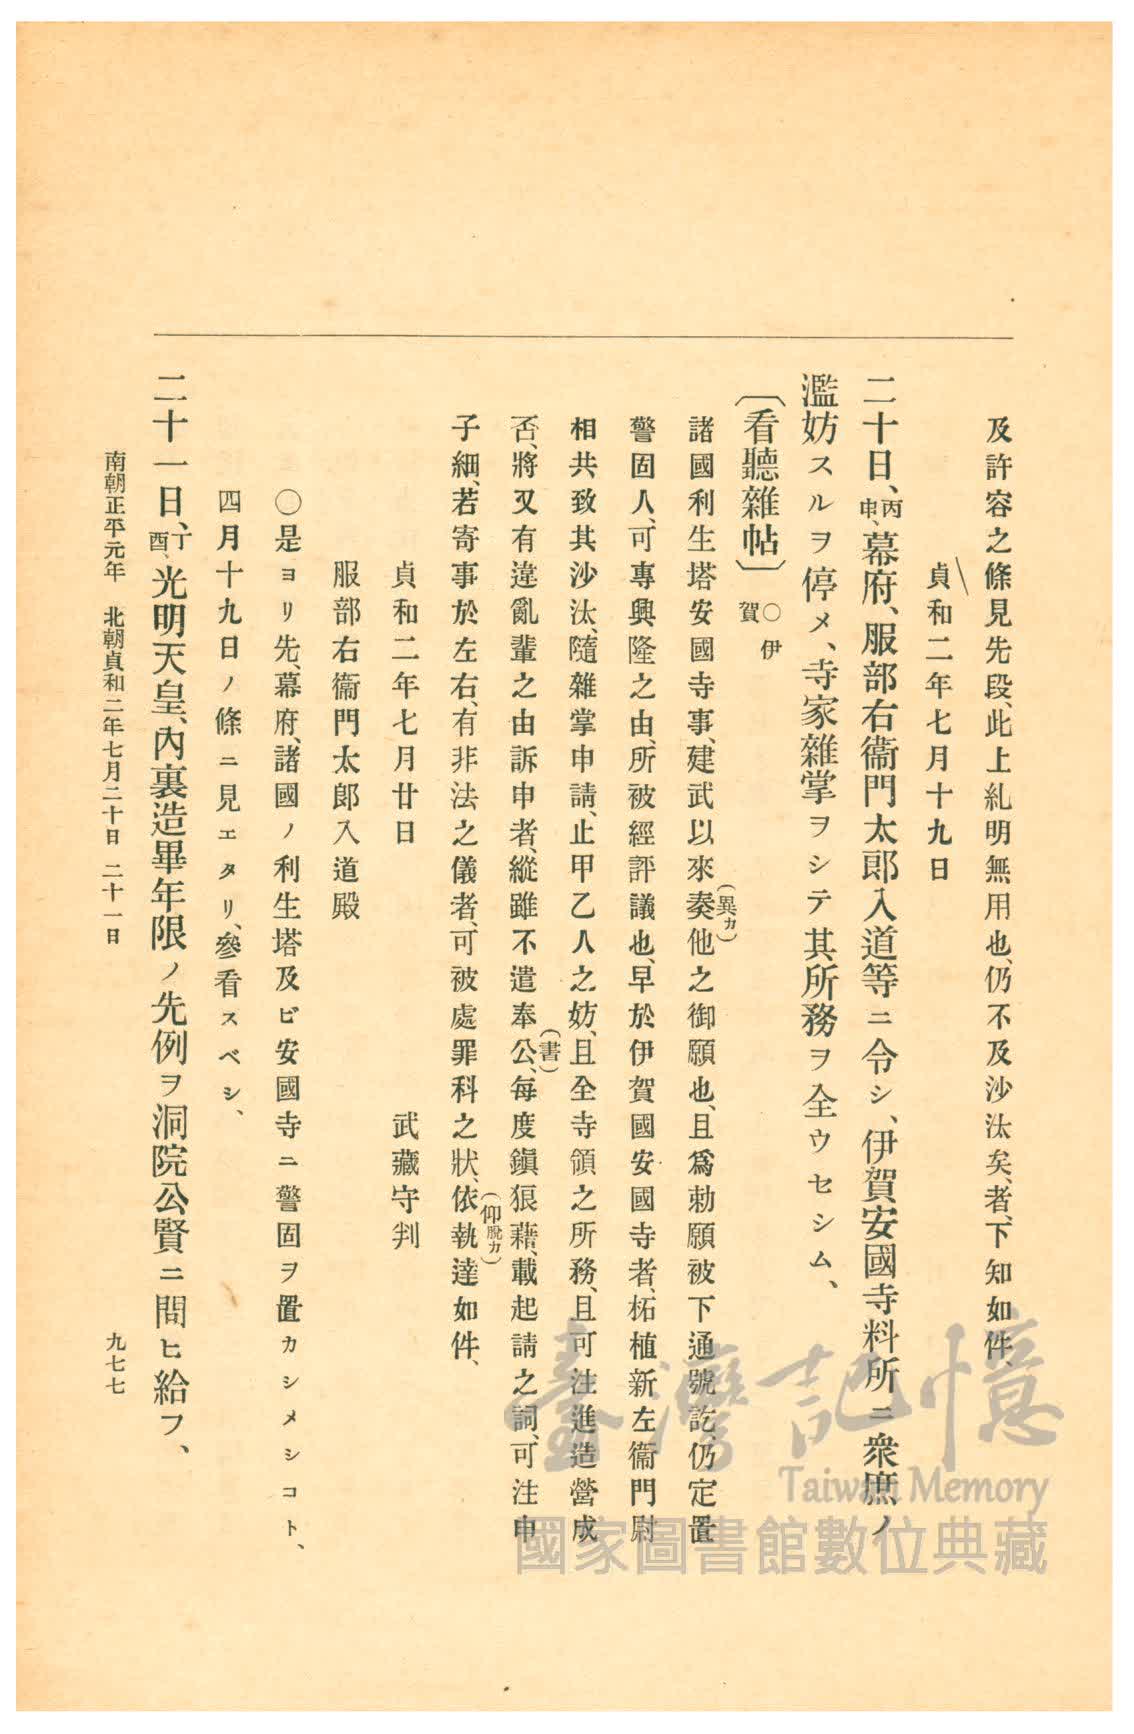 及許容之條見先段、此上糺明無用也、仍不及沙汰矣、者、下知如件、
貞和二年七月十九日
二十日、丙申、幕府、服部右衞門太郎入道等ニ令シ、伊賀安國寺料所ニ衆庶ノ
濫妨スルヲ停メ、寺家雜掌ヲシテ其所務ヲ全ウセシム、
〔看聽雜帖〕○伊賀
諸國利生塔安國寺事、建武以來奏(異カ)他之御願也、且爲勅願被下通號訖、仍定置
警固人、可專興隆之由、所被經評議也、早於伊賀國安國寺者、柘植新左衞門尉
相共致其沙汰、隨雜掌申請、止甲乙人之妨、且全寺領之所務、且可注進造營成
否、將又有違亂輩之由訴申者、縱雖不遣奉公(書)、每度鎭狼藉、載起請之詞、可注申
子細、若寄事於左右、有非法之儀者、可被處罪科之狀、依(仰脫カ)執達如件、
貞和二年七月廿日　武藏守判
服部右衞門太郎入道殿
○是ヨリ先、幕府、諸國ノ利生塔及ビ安國寺ニ警固ヲ置カシメシコト、
四月十九日ノ條ニ見エタリ、參看スベシ、
二十一日、丁酉、光明天皇、內裏造畢年限ノ先例ヲ洞院公賢ニ問ヒ給フ、
南朝正平元年　北朝貞和二年七月二十日　二十一日　九七七
臺灣記憶
Taiwan Memory
國家圖書館數位典藏